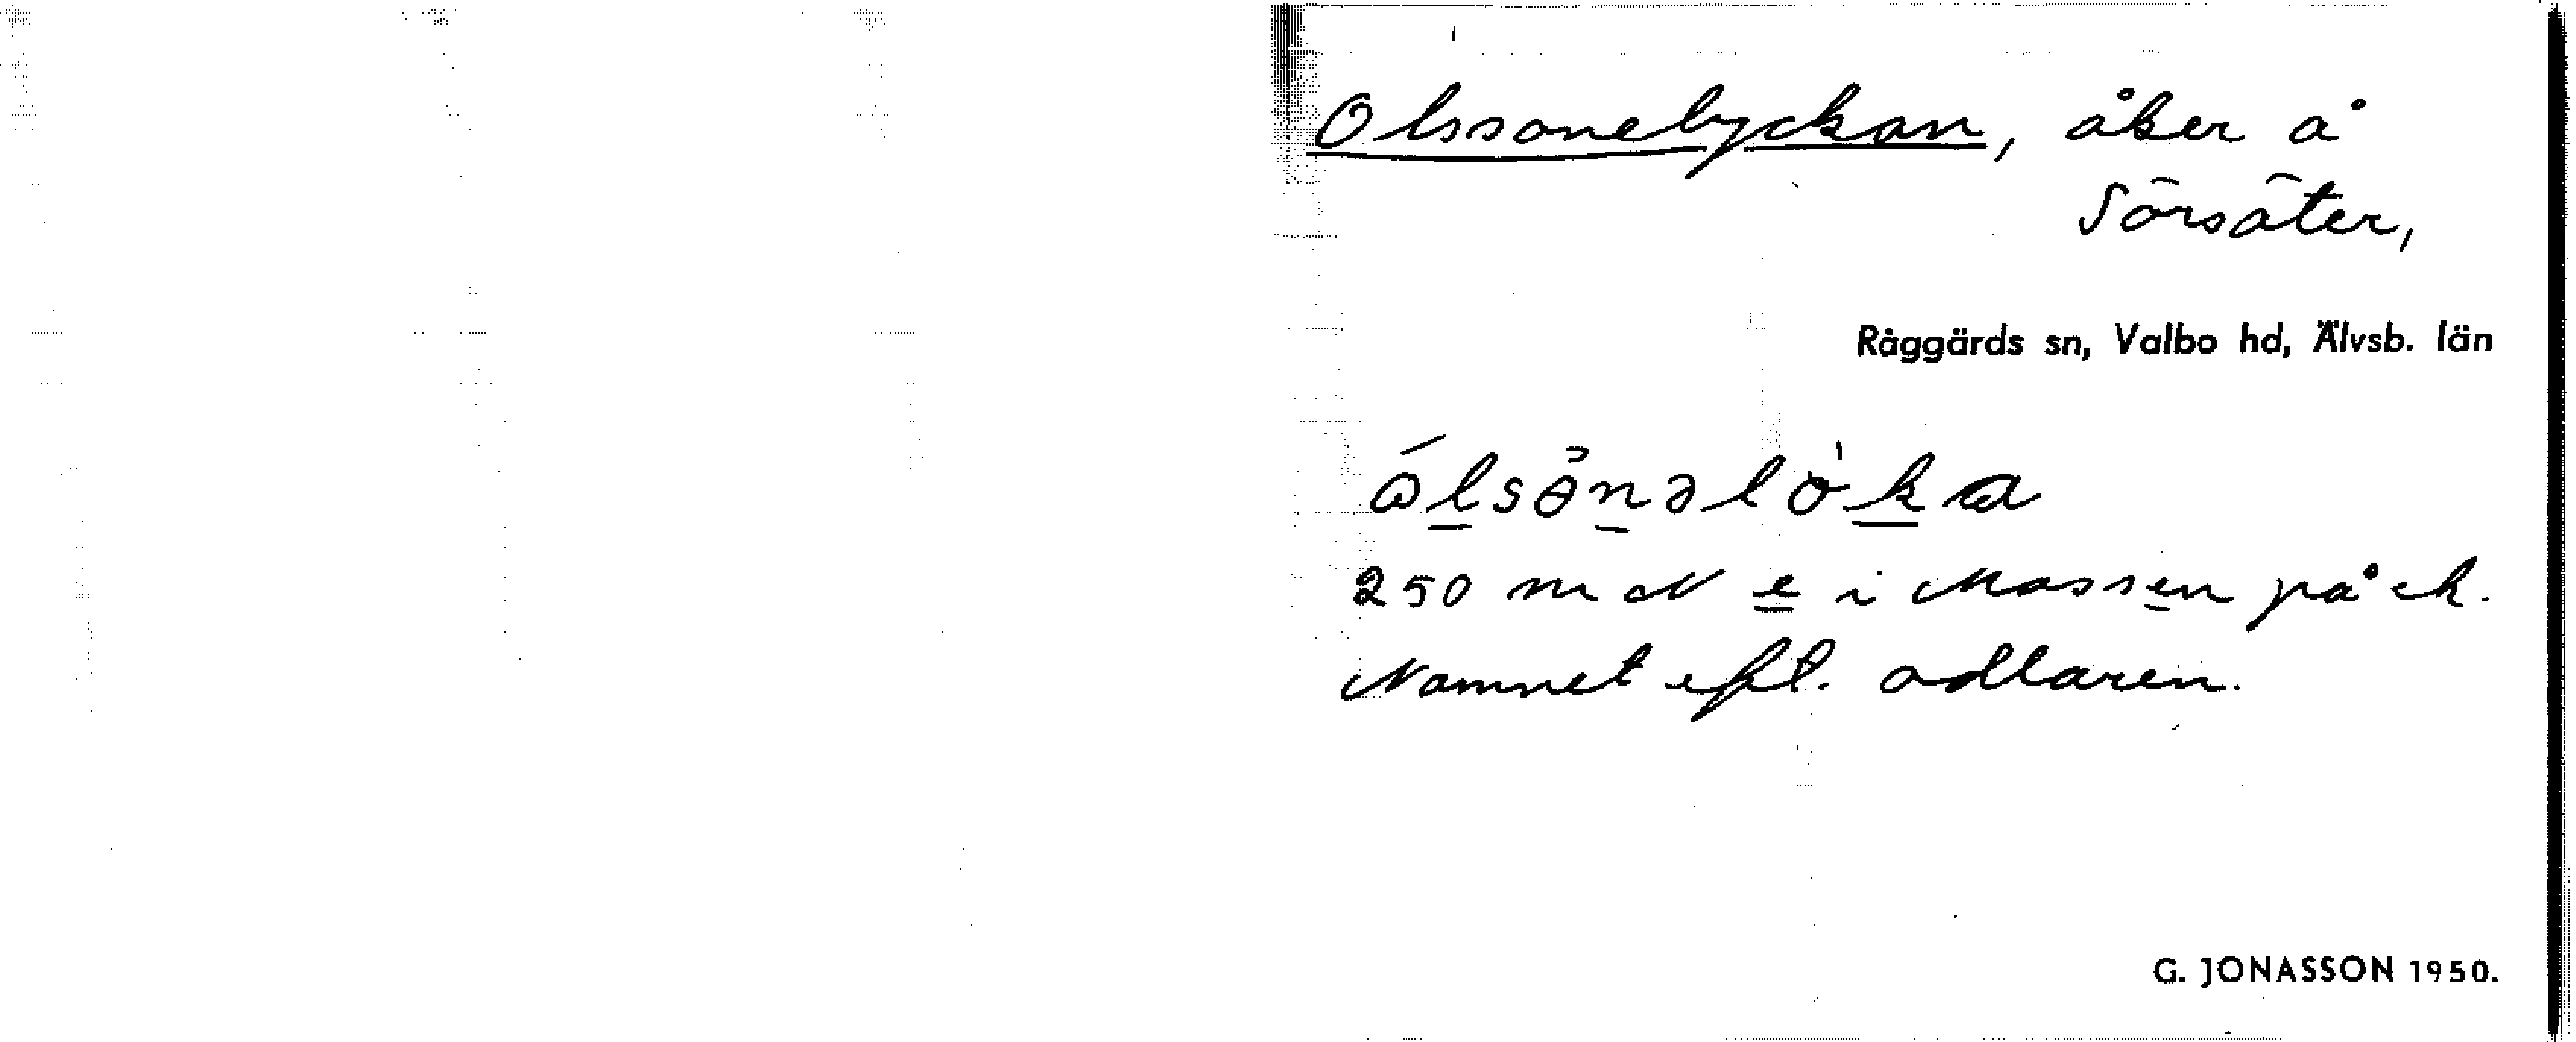 Olssonelyckan, åker å
Sörsäter,
Råggärds sn, Valbo hd, Älvsb. län
250 m N e i Mossen på ek.
Namnet eft. odlaren.
G. JONASSON 1950.